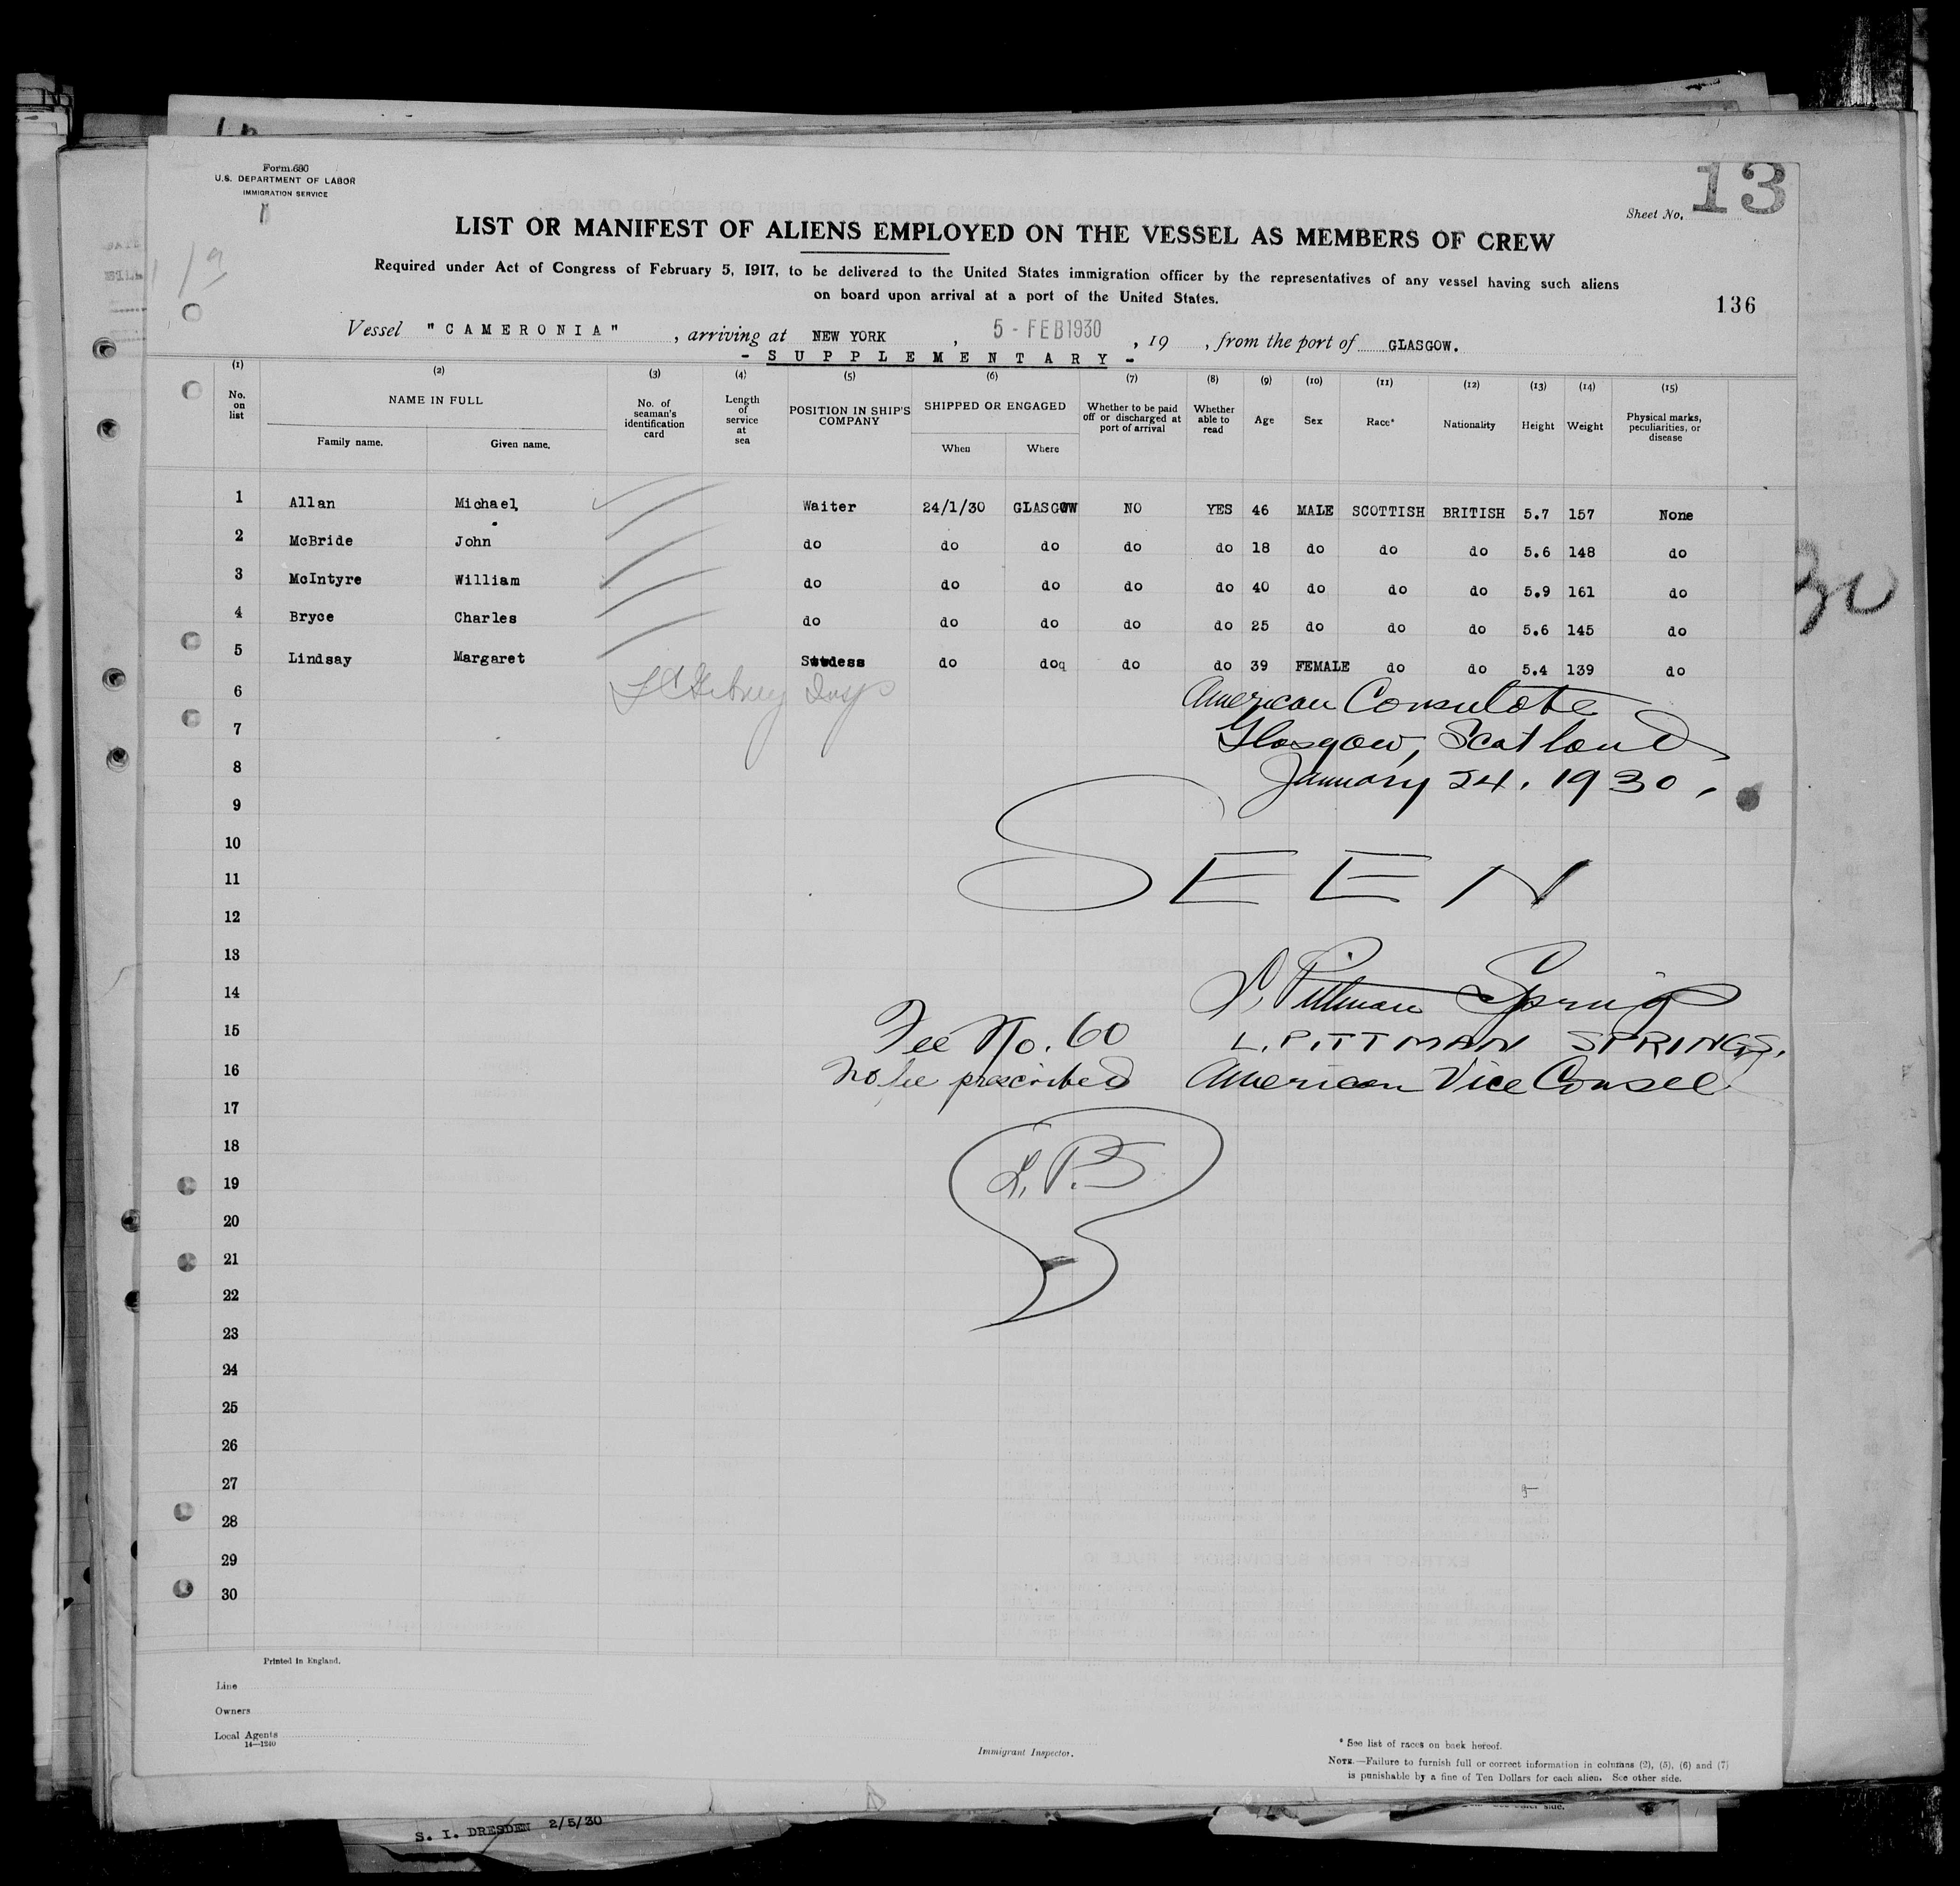 Form 680
U.S. DEPARTMENT OF LABOR
IMMIGRATION SERVICE
Sheet No. 13
LIST OR MANIFEST OF ALIENS EMPLOYED ON THE VESSEL AS MEMBERS OF CREW
Required under Act of Congress of February 5, 1917, to be delivered to the United States immigration officer by the representatives of any vessel having such aliens
on board upon arrival at a port of the United States.
136
Vessel "CAMERONIA", arriving at NEW YORK, 5 - FEB 1930, 19 , from the port of GLASGOW.
- SUPPLEMENTARY -
(1) (2) (3) (4) (5) (6) (7) (8) (9) (10) (11) (12) (13) (14) (15)
No. on list NAME IN FULL No. of seaman's identification card Length of service at sea POSITION IN SHIP'S COMPANY SHIPPED OR ENGAGED Whether to be paid off or discharged at port of arrival Whether able to read Age Sex Race* Nationality Height Weight Physical marks, peculiarities, or disease
Family name. Given name. When Where
1 Allan Michael Waiter 24/1/30 GLASGOW NO YES 46 MALE SCOTTISH BRITISH 5.7 157 None
2 McBride John do do do do do 18 do do do 5.6 148 do
3 McIntyre William do do do do do 40 do do do 5.9 161 do
4 Bryce Charles do do do do do 25 do do do 5.6 145 do
5 Lindsay Margaret do do do do 39 FEMALE do do 5.4 139 do
6
American Consulate
7
Glasgow, Scotland
8
January 24, 1930.
9
10
11
SEEN
12
13
14
L. Pittman Springs
15
Fee No. 60 L. PITTMAN SPRINGS.
16
No fee prescribed American Vice Consul
17
18
19
L.P.S
20
21
22
23
24
25
26
27
28
29
30
Printed in England.
Line
Owners
Local Agents
14—1240
Immigrant Inspector.
* See list of races on back hereof.
NOTE.—Failure to furnish full or correct information in columns (2), (5), (6) and (7)
is punishable by a fine of Ten Dollars for each alien. See other side.
S. I. DRESDEN 2/5/30